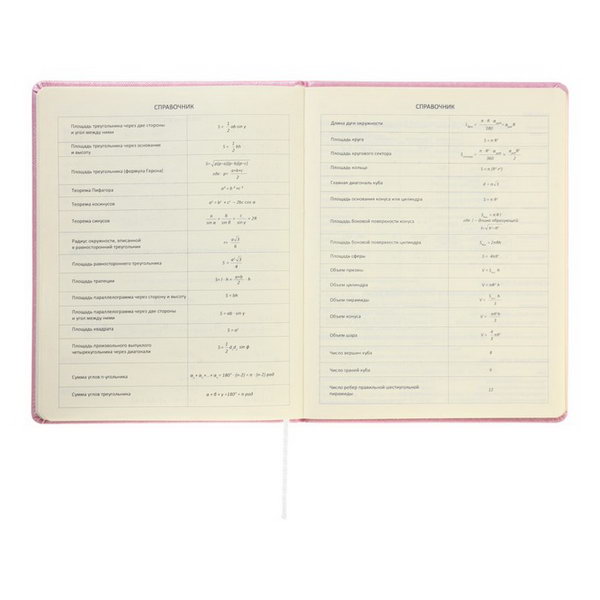 СПРАВОЧНИК
Площадь треугольника через две стороны
и угол между ними
S = 1/2 ab sin γ
Площадь треугольника через основание
и высоту
S = 1/2 bh
Площадь треугольника (формула Герона)
S=√p(p-a)(p-b)(p-c)
где p= a+b+c/2
Теорема Пифагора
a² + b² = c²
Теорема косинусов
a² = b² + c² - 2bc cos α
Теорема синусов
a/sin α = b/sin β = c/sin γ = 2R
Радиус окружности, вписанной
в равносторонний треугольник
Площадь равностороннего треугольника
S = a²√3/4
Площадь трапеции
Площадь параллелограмма через сторону и высоту
S = bh
Площадь параллелограмма через две стороны
и угол между ними
S = ab · sin γ
Площадь квадрата
S = a²
Площадь произвольного выпуклого
четырехугольника через диагонали
S = 1/2 d₁d₂ sin φ
Сумма углов n-угольника
α₁ + α₂ +...+ αₙ = 180° · (n-2) = π · (n-2) рад
Сумма углов треугольника
α + β + γ =180° = π рад
СПРАВОЧНИК
Длина дуги окружности
Площадь круга
S = π R²
Площадь кругового сектора
Площадь кольца
Главная диагональ куба
Площадь основания конуса или цилиндра
S = π R²
Площадь боковой поверхности конуса
где l – длина образующей
Площадь боковой поверхности цилиндра
Площадь сферы
S = 4πR²
Объем призмы
Объем цилиндра
V = πR² h
Объем пирамиды
Объем конуса
Объем шара
V = 4/3 πR³
Число вершин куба
8
Число граней куба
6
Число ребер правильной шестиугольной
пирамиды
12